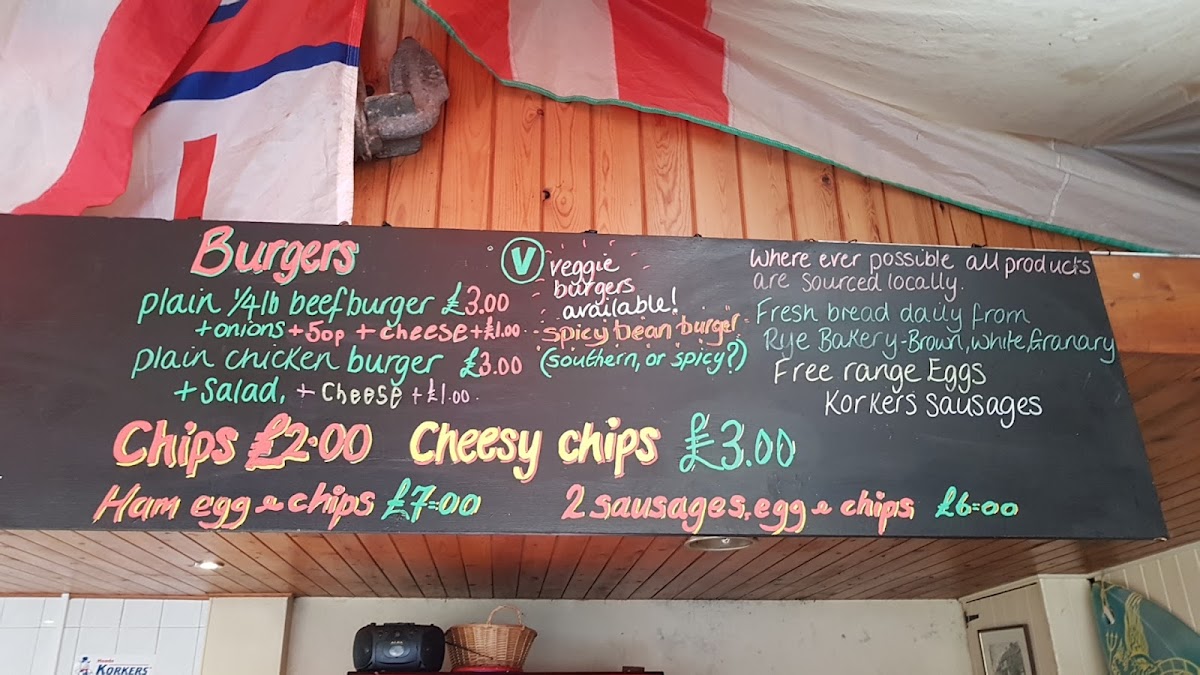 Burgers
plain 1/4 lb beefburger £3.00
+onions +50p + cheese +£1.00
plain chicken burger £3.00
+ salad, + cheese +£1.00
V veggie
burgers
available!
spicy bean burger
(southern, or spicy?)
Where ever possible all products
are sourced locally.
Fresh bread daily from
Rye Bakery-Brown, white, Granary
Free range Eggs
Korkers sausages
Chips £2.00 Cheesy chips £3.00
Ham egg & chips £7=00 2 sausages, egg & chips £6=00
KORKERS